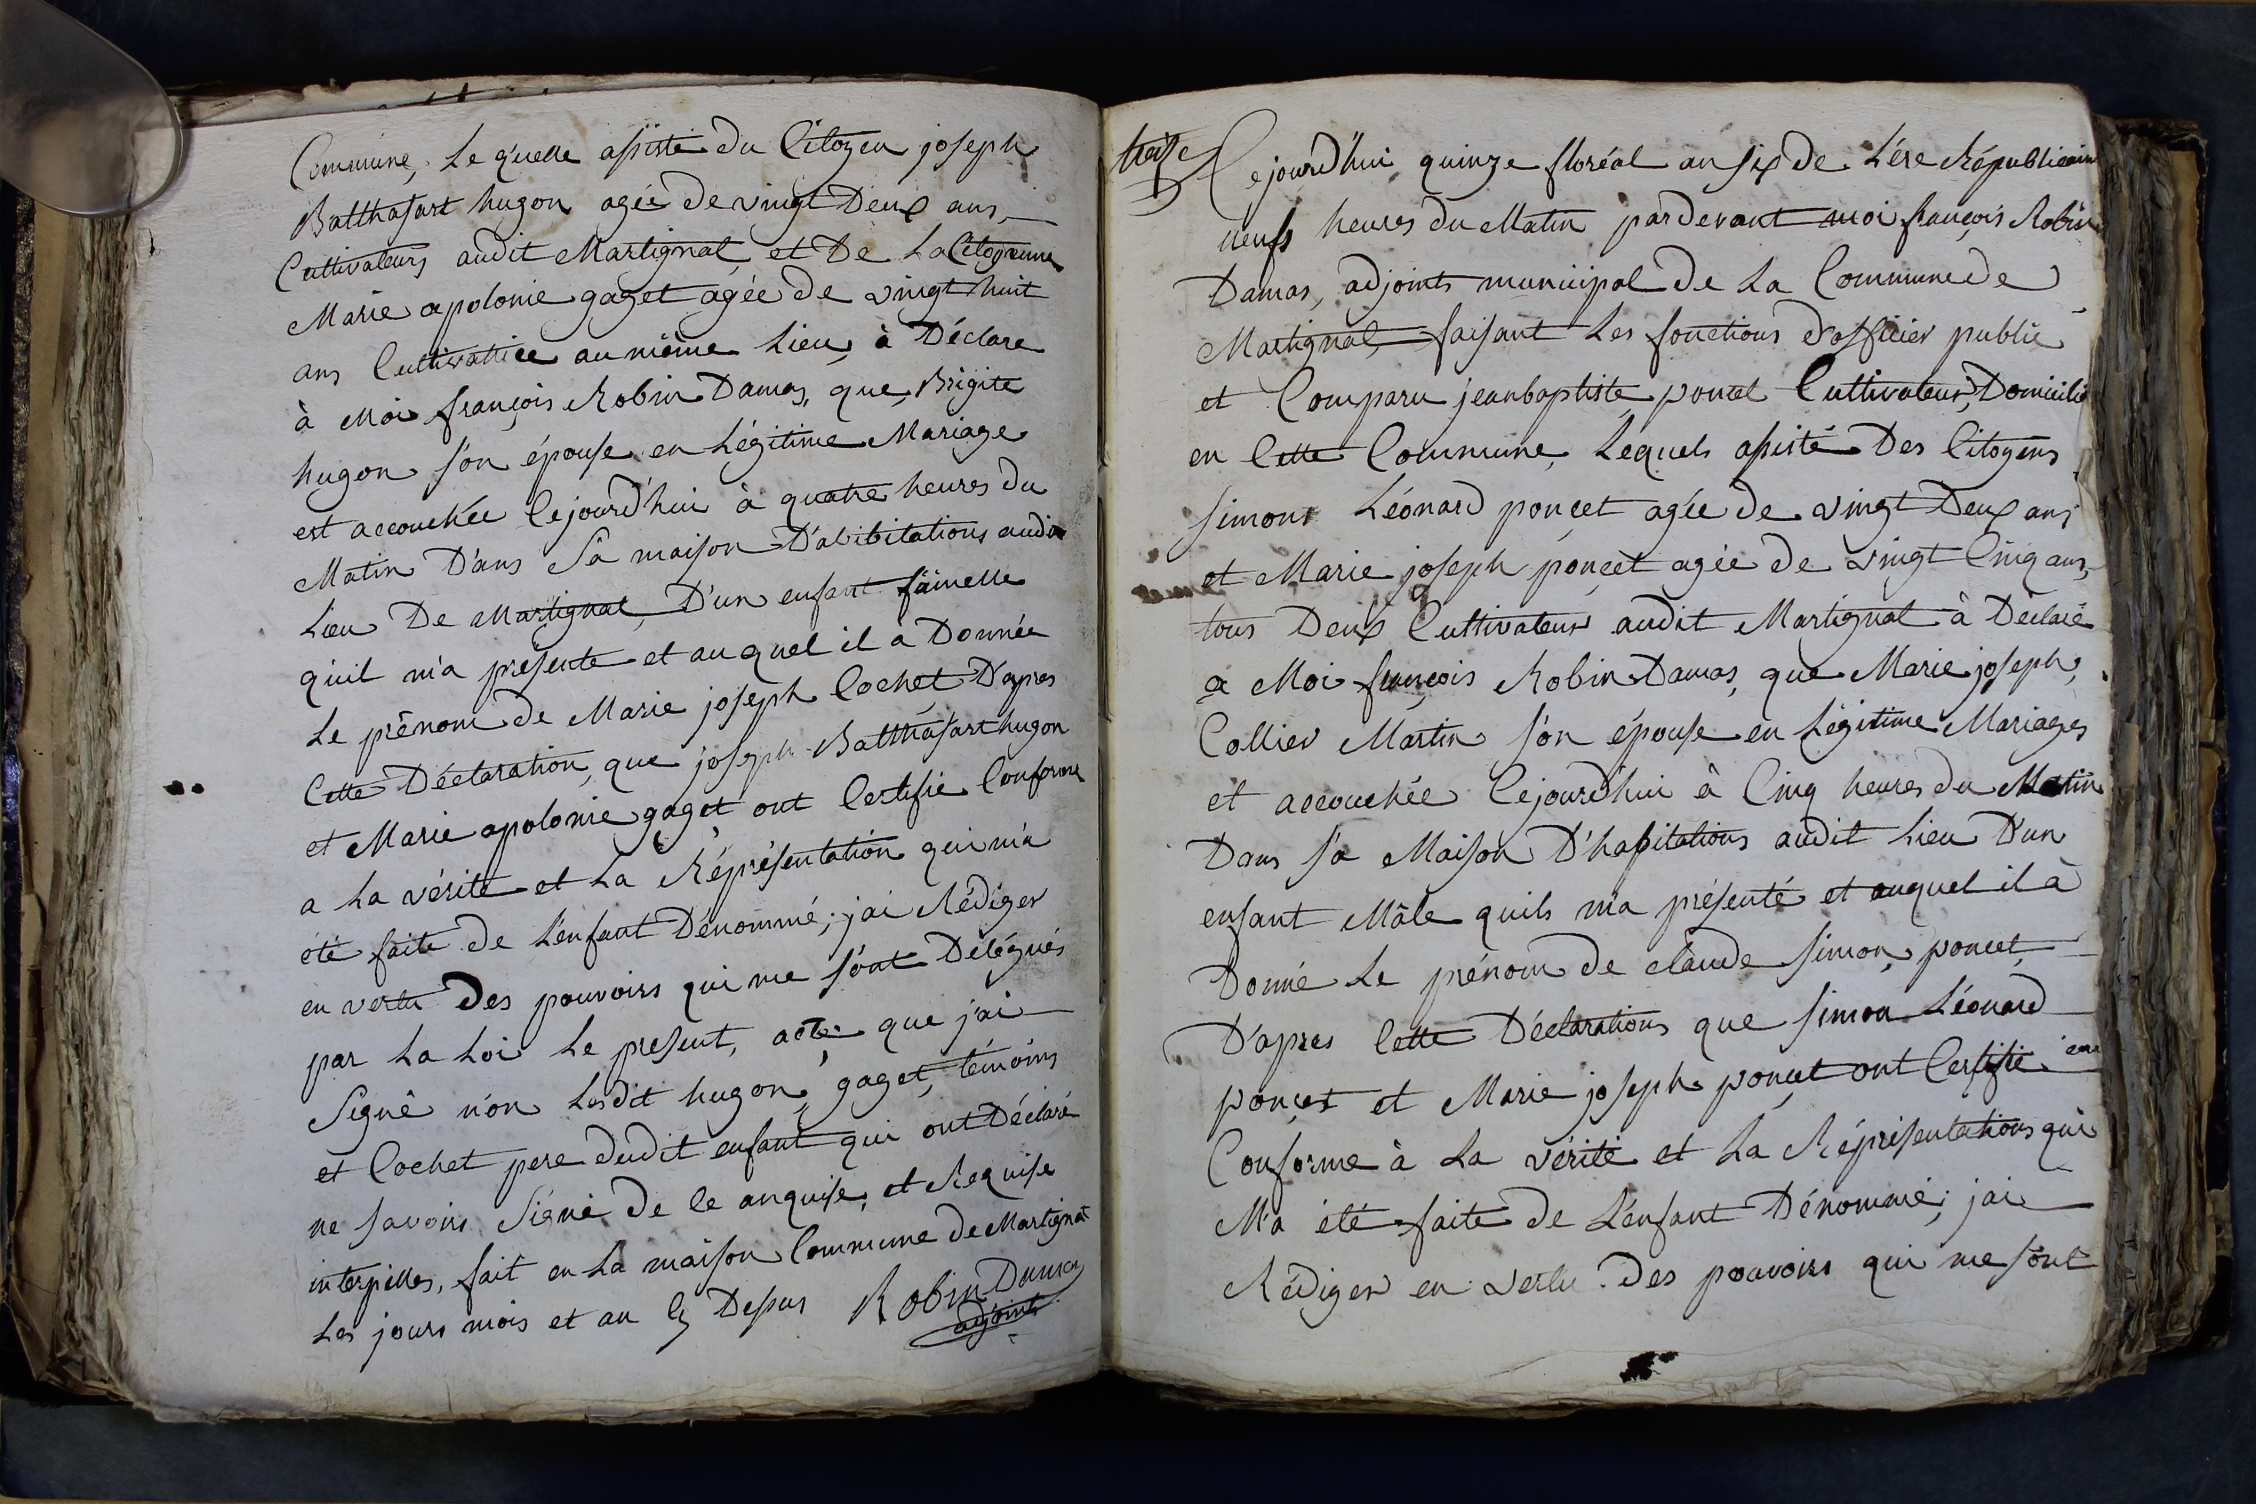 Commune, Le q'uelle assisté du Citoyen joseph
Batthasart hugon agée de vingt Deux ans,
Cultivateurs audit Martignat, et De La Citoyenne
Marie apolonie gaget agée de vingt huit
ans Cultivattice au même Lieu, à Déclare
à Moi françois Robin Damas, que, Brigite
hugon s'on épouse en Légitime Mariage
est accouchée Cejourd'hui à quatre heures du
Matin D'ans Sa maison D'abibitations audit
Lieu De Martignat, D'un enfant fämelle
quil m'a présente et auquel il à Donnée
Le prénom de Marie joseph Cochet, D'apres
Cette Déclaration, que joseph Batthasart hugon
et Marie apolonie gaget ont Certifié Conforme
a La vérité et La Réprésentation qui m'a
été faite de L'enfant Dénommé; j'ai Rédiger
en vertu Des pouvoirs qui me sont Délégués
par La Loi Le present, acte que j'ai
Signé n'on Lesdit hugon, gaget, témoins
et Cochet pere dudit enfant qui ont Déclaré
ne savoirs Signé de ce anquise, et Requise
interpilles, fait en La maison Commune de Martignat
Les jours mois et an Cy Dessus Robin Damas
adjoint
traise
Cejourd'hui quinze floréal an six de L'ére Républicaine
neufs heures du Matin pardevant moi françois Robin
Damas, adjoints municipal de La Commune de
Martignat faisant Les fonctions d'officier publie
et Comparu jeanbaptiste poncet Cultivateur, Domicilié
en Cette Commune, Lequels assisté Des Citoyens
simons Léonard ponçet agée de vingt Deux ans
et Marie joseph ponçet agée de vingt Cinq ans,
tous Deux Cultivateur audit Martignat à Déclaré
a Moi françois Robin Damas, que Marie joseph,
Collier Martin s'on épouse en Légitime Mariages
et accouchée Cejourd'hui à Cinq heures du Matin
Dans s'a Maison D'habitations audit Lieu D'un
enfant Mâle quils m'a présenté et auquel il à
Donné Le prénom de claude simon, poncet,
D'apres Cette Déclarations que simon Léonard
ponçet et Marie joseph ponçet ont Certifié
Conforme à La vérité et La Réprésentations qui
M'a été faite de L'enfant Dénommé; j'ai
Rédiger en vertu Des pouvoirs qui me sont